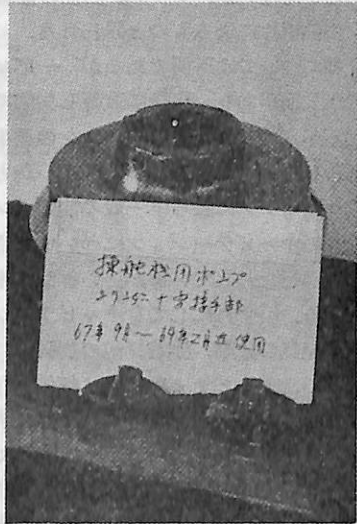 操舵機用ポンプ
十字接手部
67年9月〜69年2月迄使用